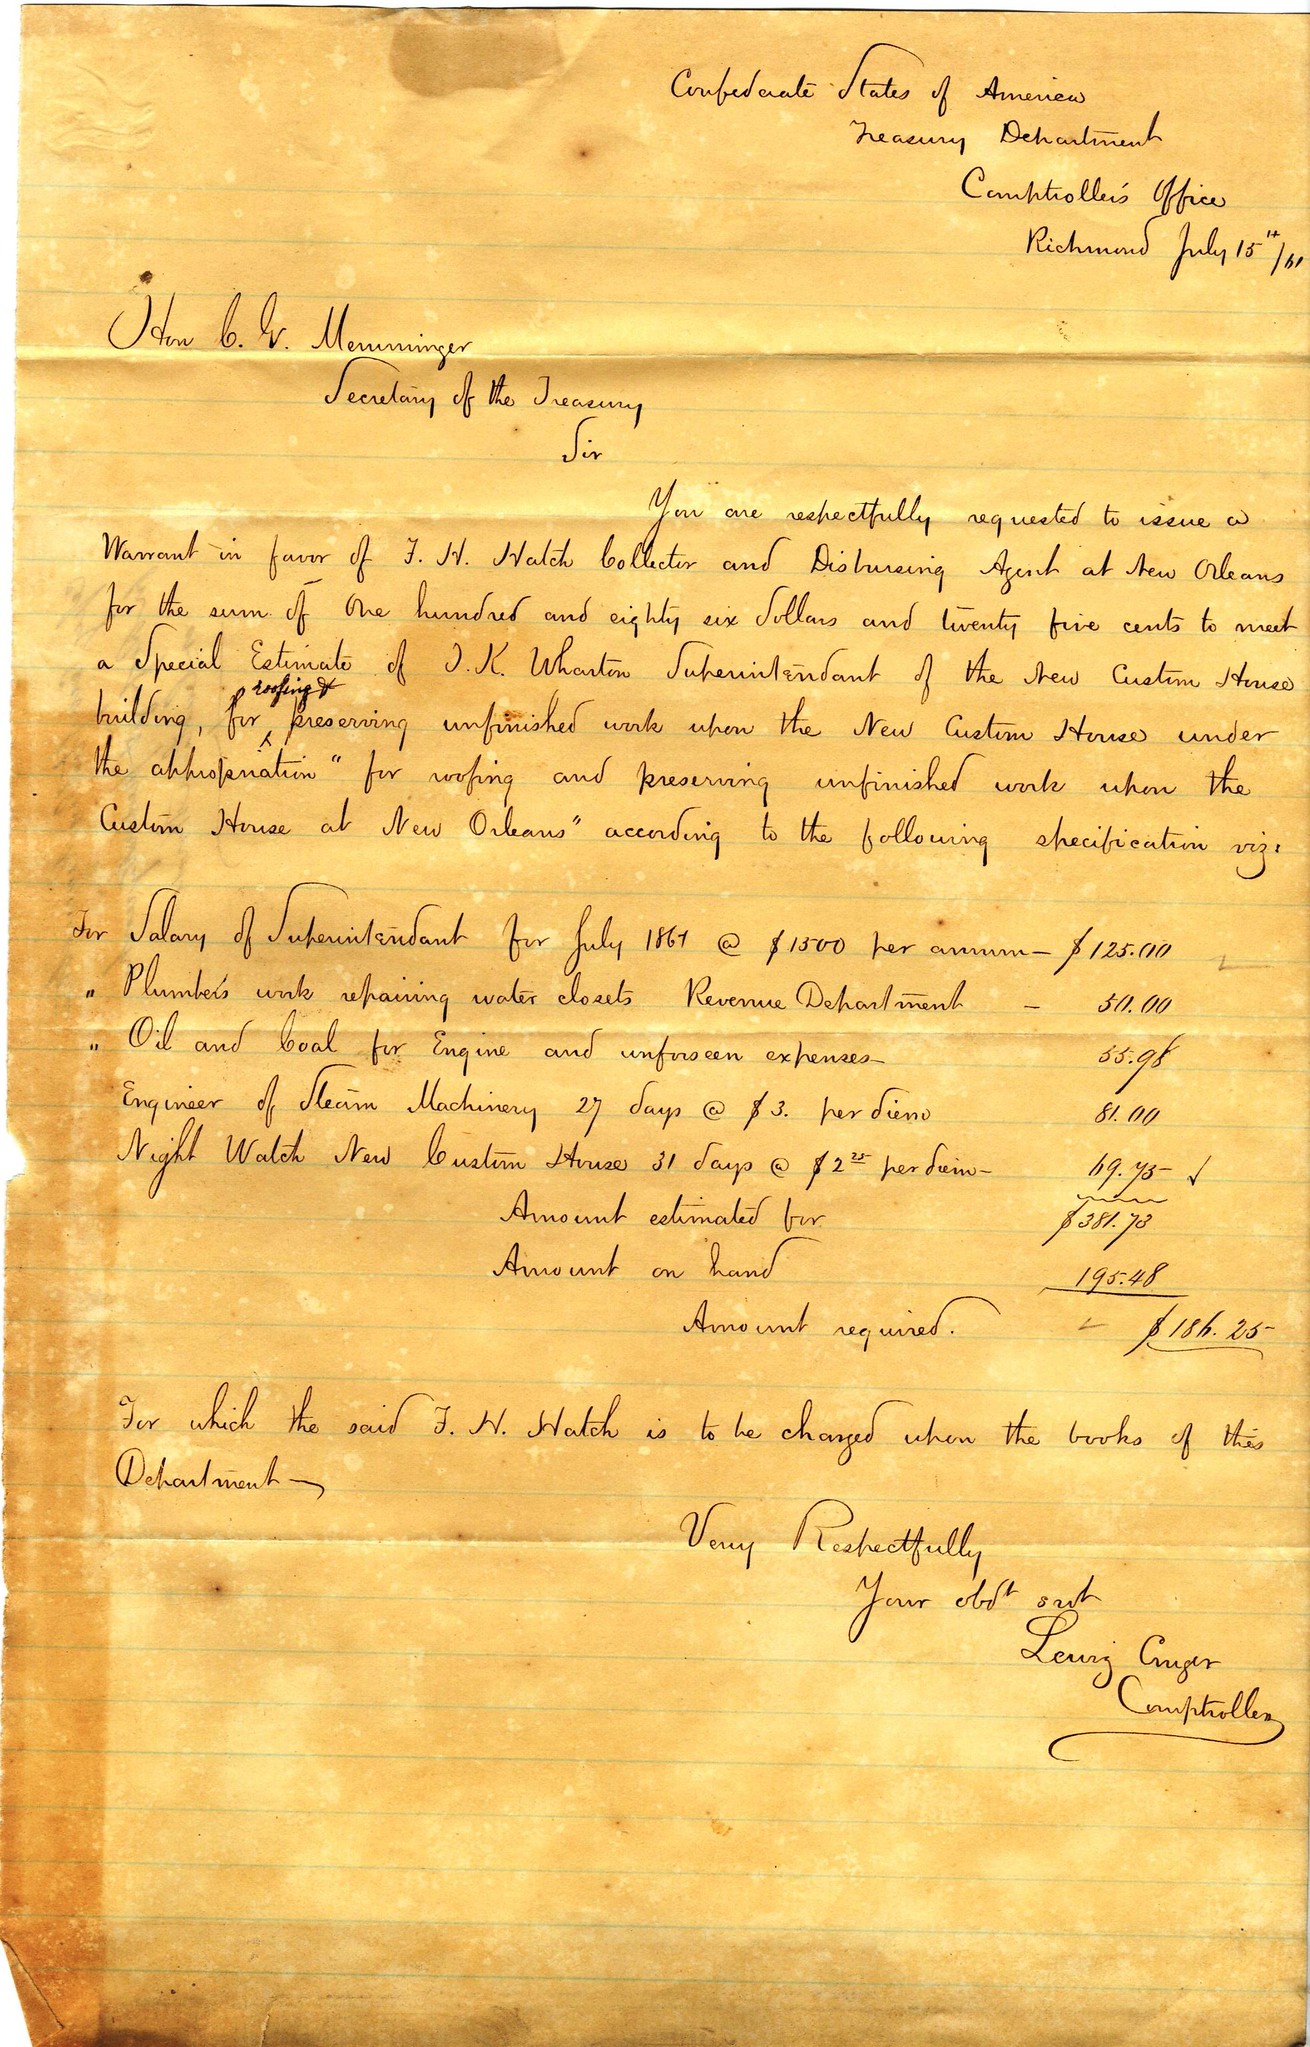 Confederate States of America
Treasury Department
Comptroller's Office
Richmond July 15th/61
Hon C. G. Memminger
Secretary of the Treasury
Sir
You are respectfully requested to issue a
Warrant in favor of F. H. Hatch Collector and Disbursing Agent at New Orleans
for the sum of One hundred and eighty six dollars and twenty five cents to meet
a Special Estimate of T. K. Wharton Superintendant of the New Custom House
building, for roofing & preserving unfinished work upon the New Custom House under
the appropriation "for roofing and preserving unfinished work upon the
Custom House at New Orleans" according to the following specification viz:
For Salary of Superintendant for July 1861 @ $1500 per annum — $125.00
" Plumber's work repairing water closets Revenue Department — 50.00
" Oil and Coal for Engine and unforseen expenses — 55.98
Engineer of Steam Machinery 27 days @ $3. per diem 81.00
Night Watch New Custom House 31 days @ $2 25 per diem — 69.75
Amount estimated for $381.73
Amount on hand 195.48
Amount required. $186.25
For which the said F. H. Hatch is to be charged upon the books of this
Department —
Very Respectfully
Your obdt svt
Lewis Cruger
Comptroller